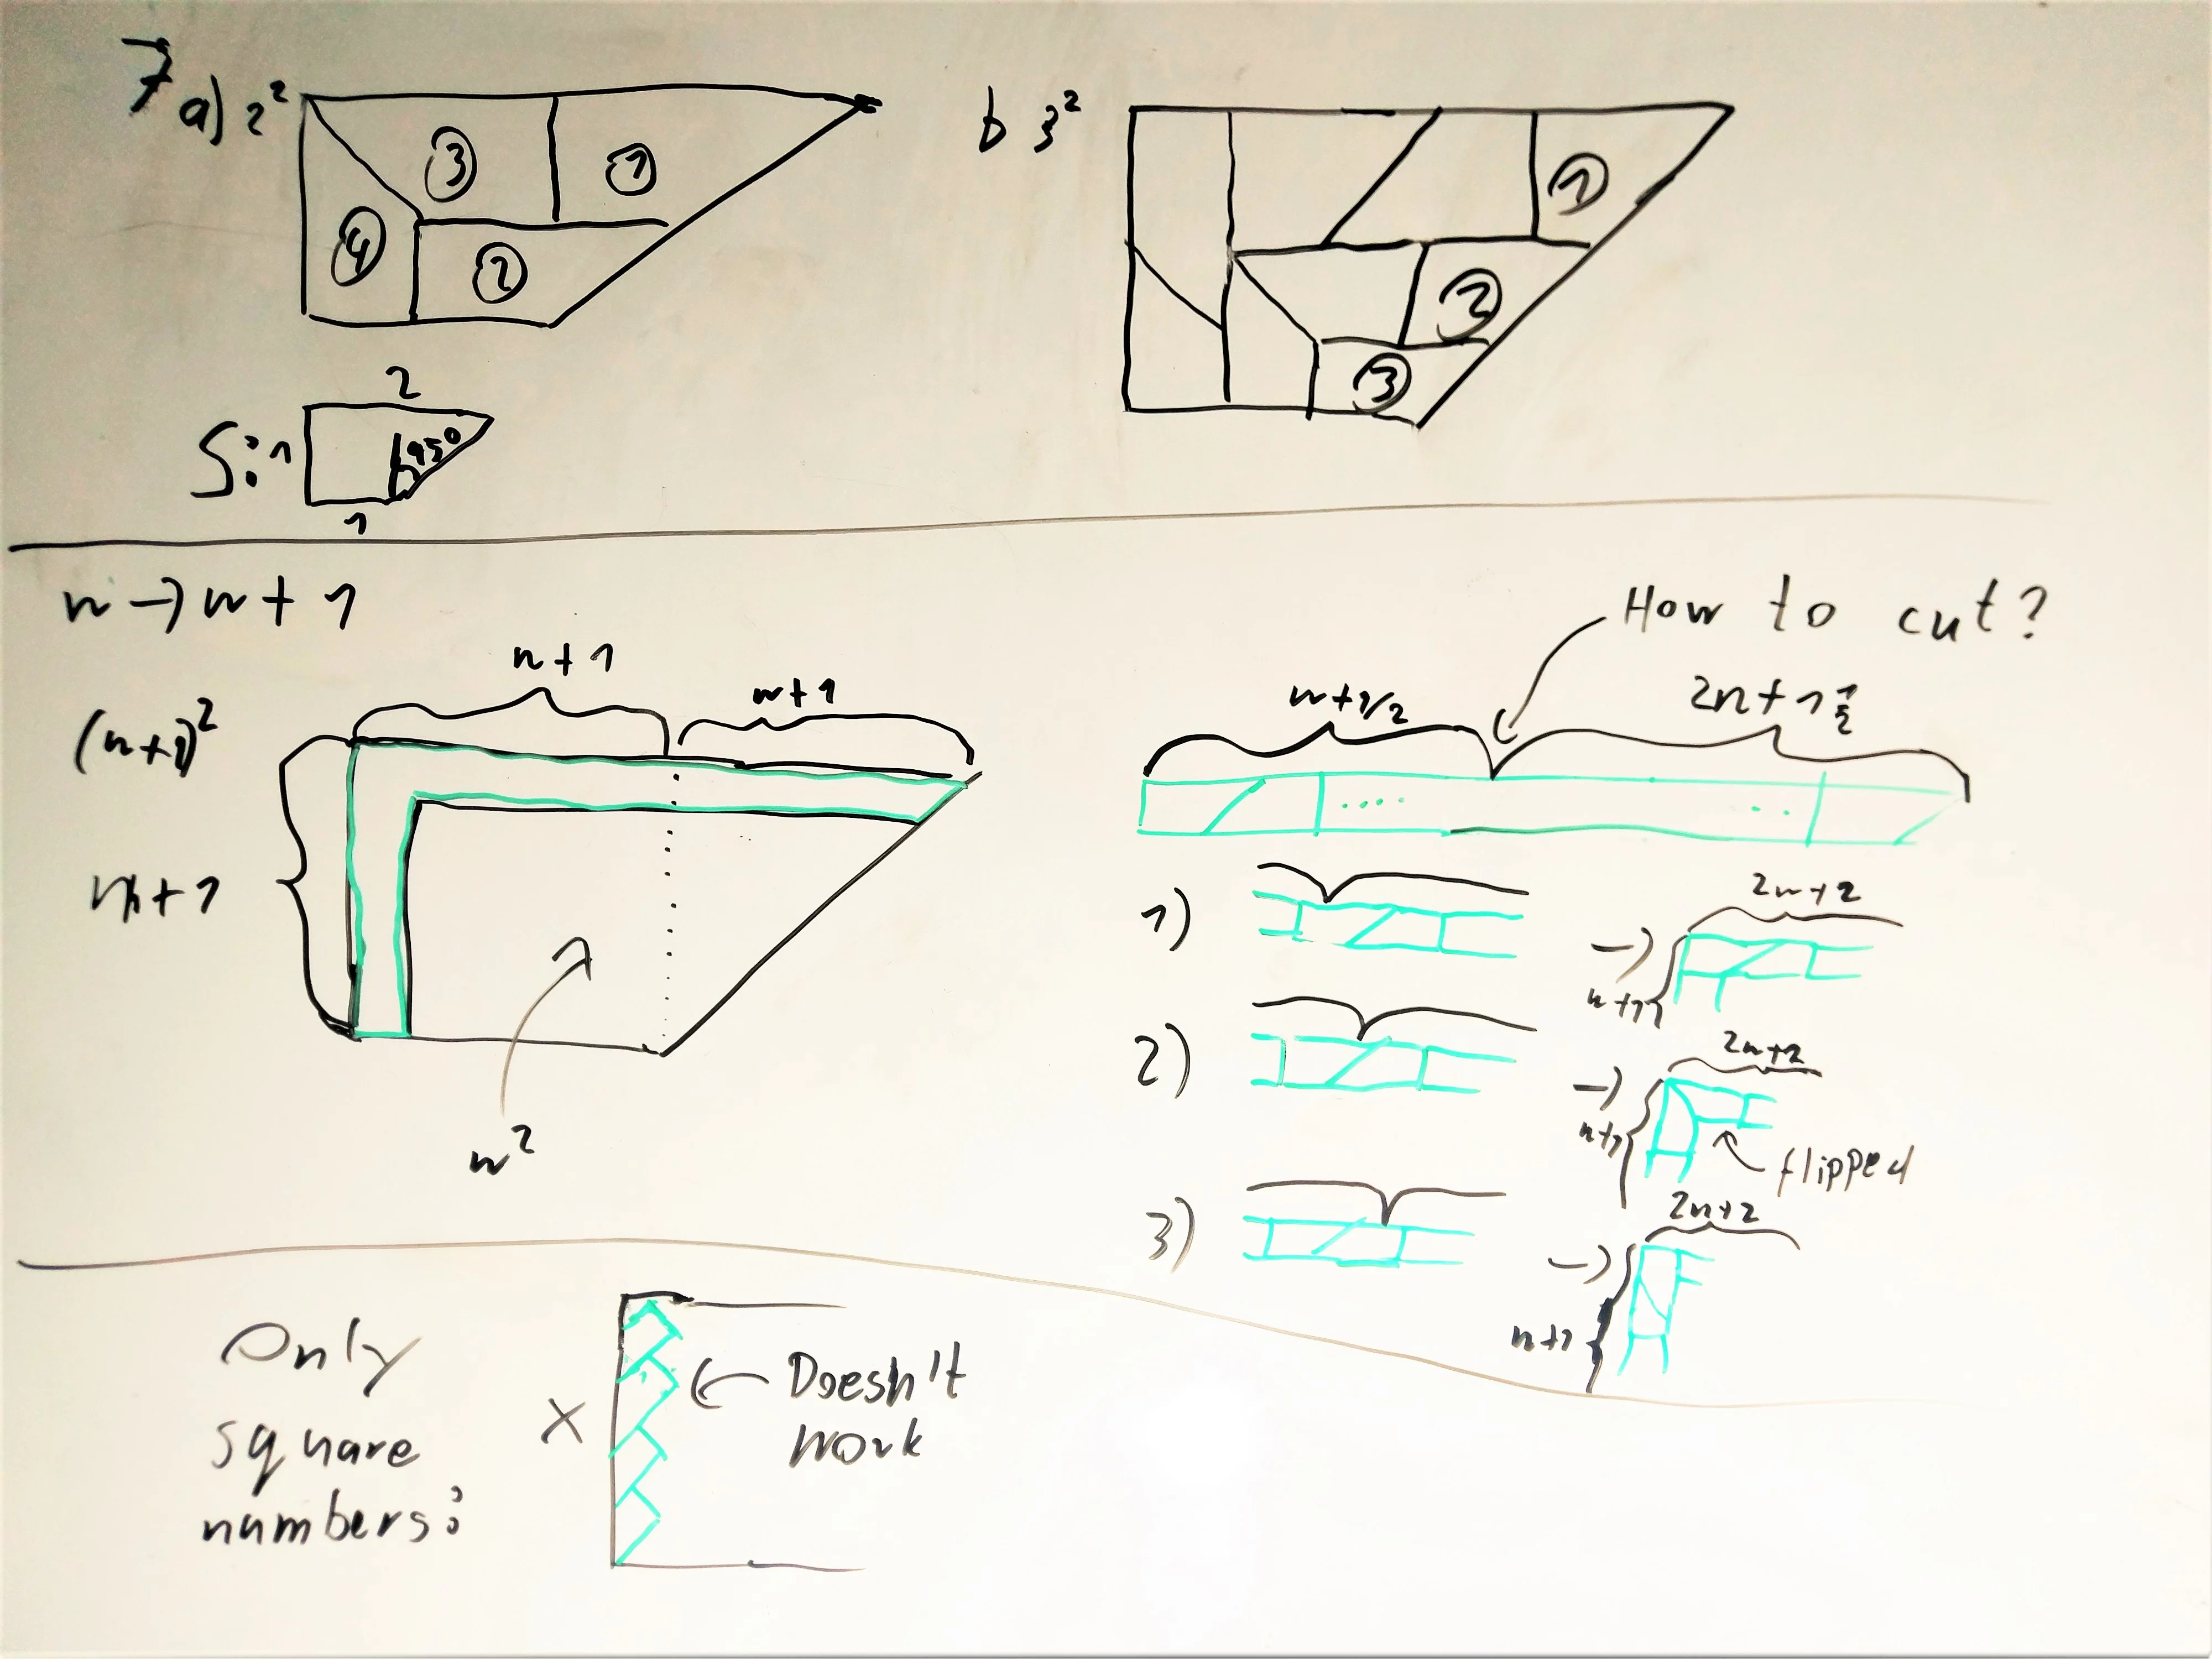 7 a) 2²
3
1
4
2
b 3²
1
2
3
S:
2
1
45°
1
n → n + 1
(n+1)²
n+1
n+1
n+1
n²
How to cut?
n+1/2
2n+1 1/2
1)
→
2n+2
n+1
2)
→
2n+2
n+1
flipped
3)
→
2n+2
n+1
Only
square
numbers:
x
Doesn't
work